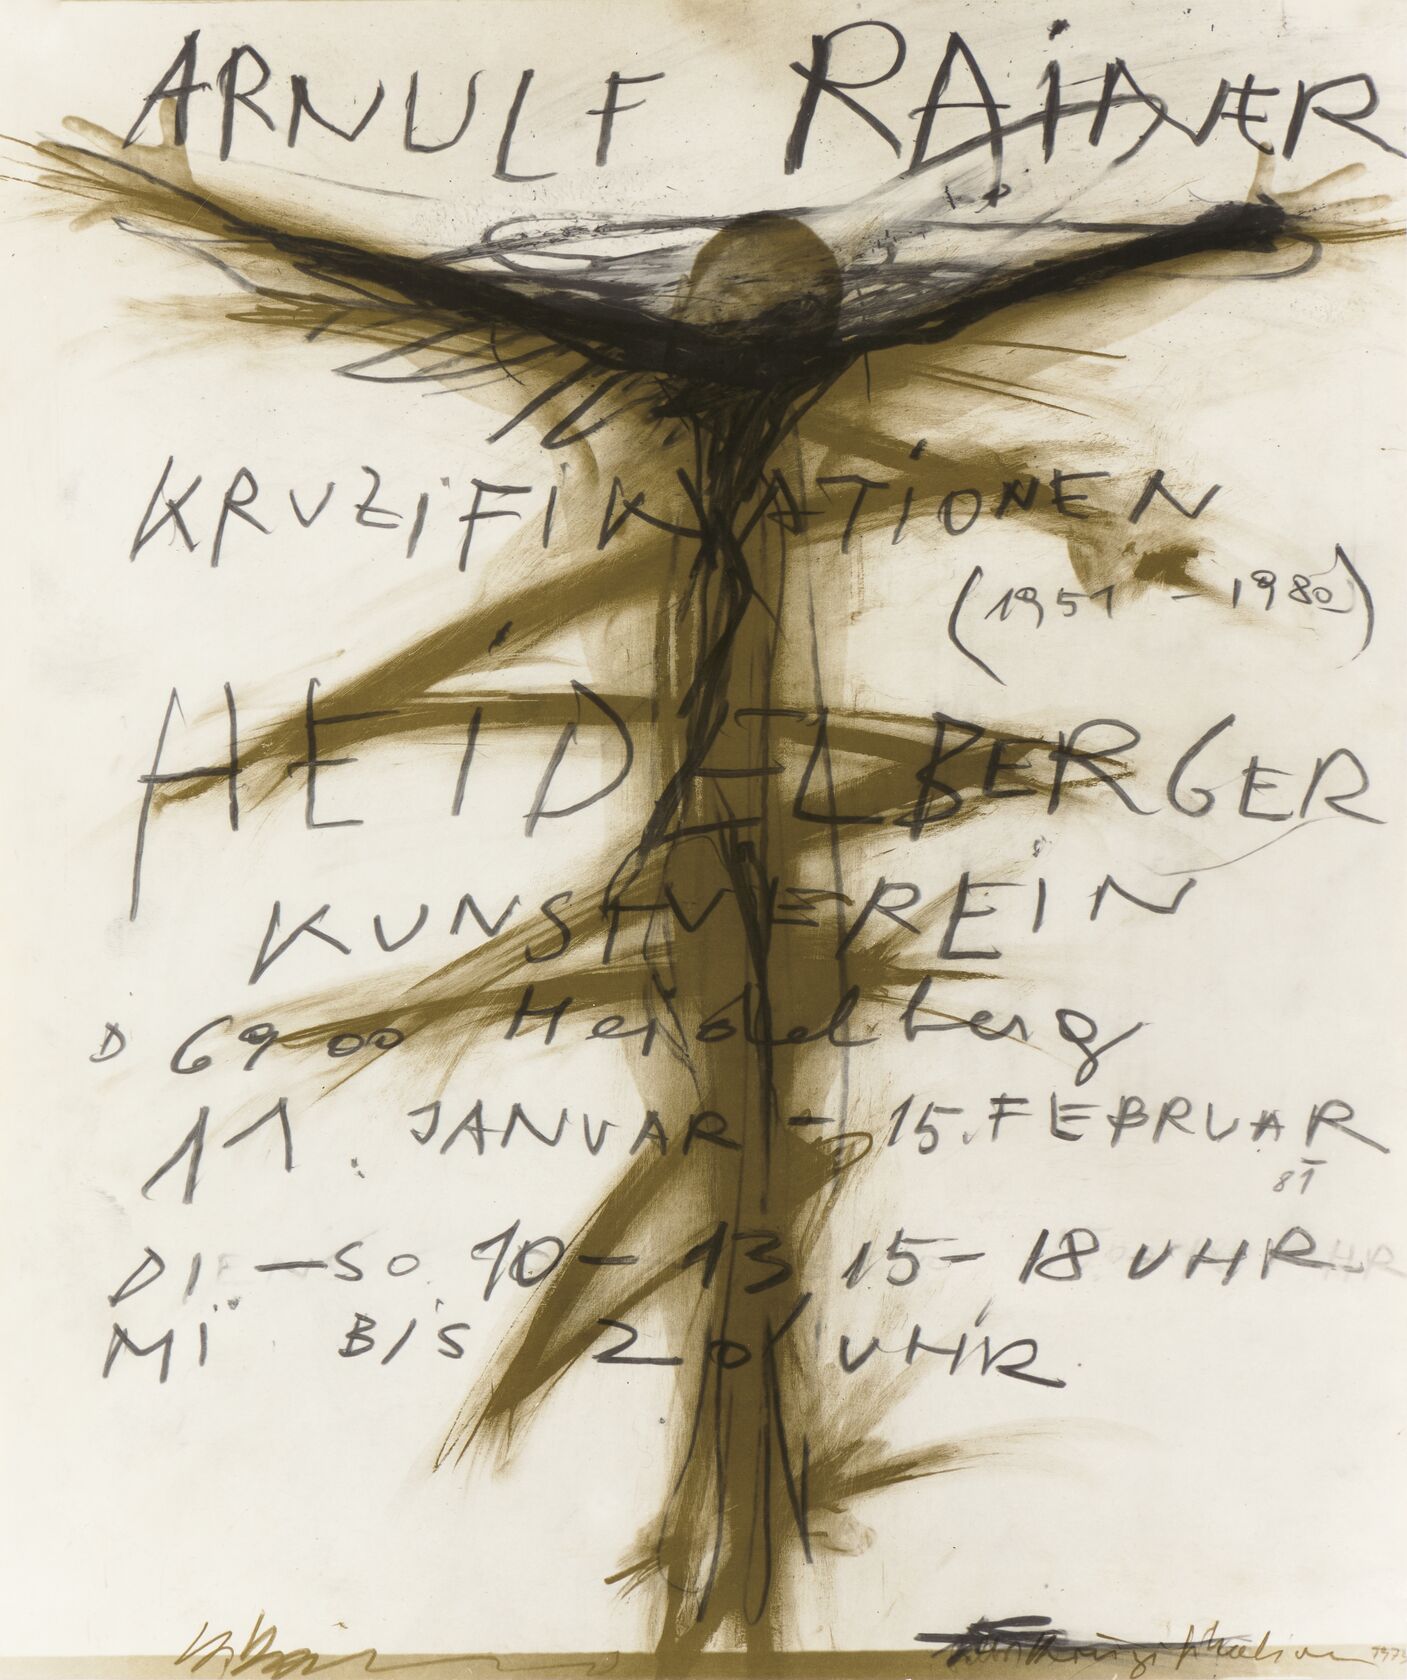 ARNULF RAINER
KRUZIFIKATIONEN
(1951 - 1980)
HEIDELBERGER
KUNSTVEREIN
D 6900 Heidelberg
11. JANUAR - 15. FEBRUAR
81
DI. - SO. 10 - 13, 15 - 18 UHR
MI BIS 20 UHR